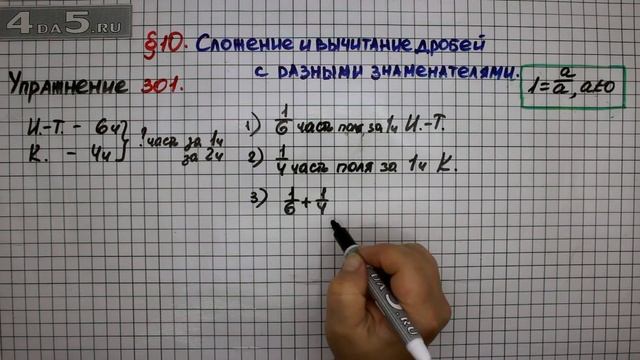 4DA5.RU
§10. Сложение и вычитание дробей
с разными знаменателями.
1 = a/a, a≠0
Упражнение 301.
И.-Т. - 6ч
К. - 4ч
? часть за 1ч
за 2ч
1) 1/6 часть поля за 1ч И.-Т.
2) 1/4 часть поля за 1ч К.
3) 1/6 + 1/4
4DA5.RU